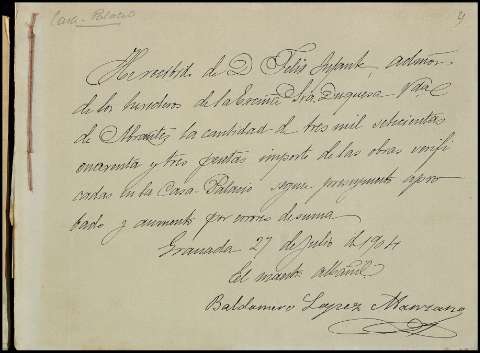 Casa-Palacio
4
He recibido de D Felix Infante, admor.
de los herederos de la Excma Sra Duquesa Vda
de Abrantes la cantidad de tres mil setecientas
cuarenta y tres pesetas importe de las obras verifi
cadas en la Casa Palacio segun presupuesto apro
bado y aumento por errores de suma
Granada 27 de Julio d 1904
El maestro albañil
Baldomero Lopez Manzano